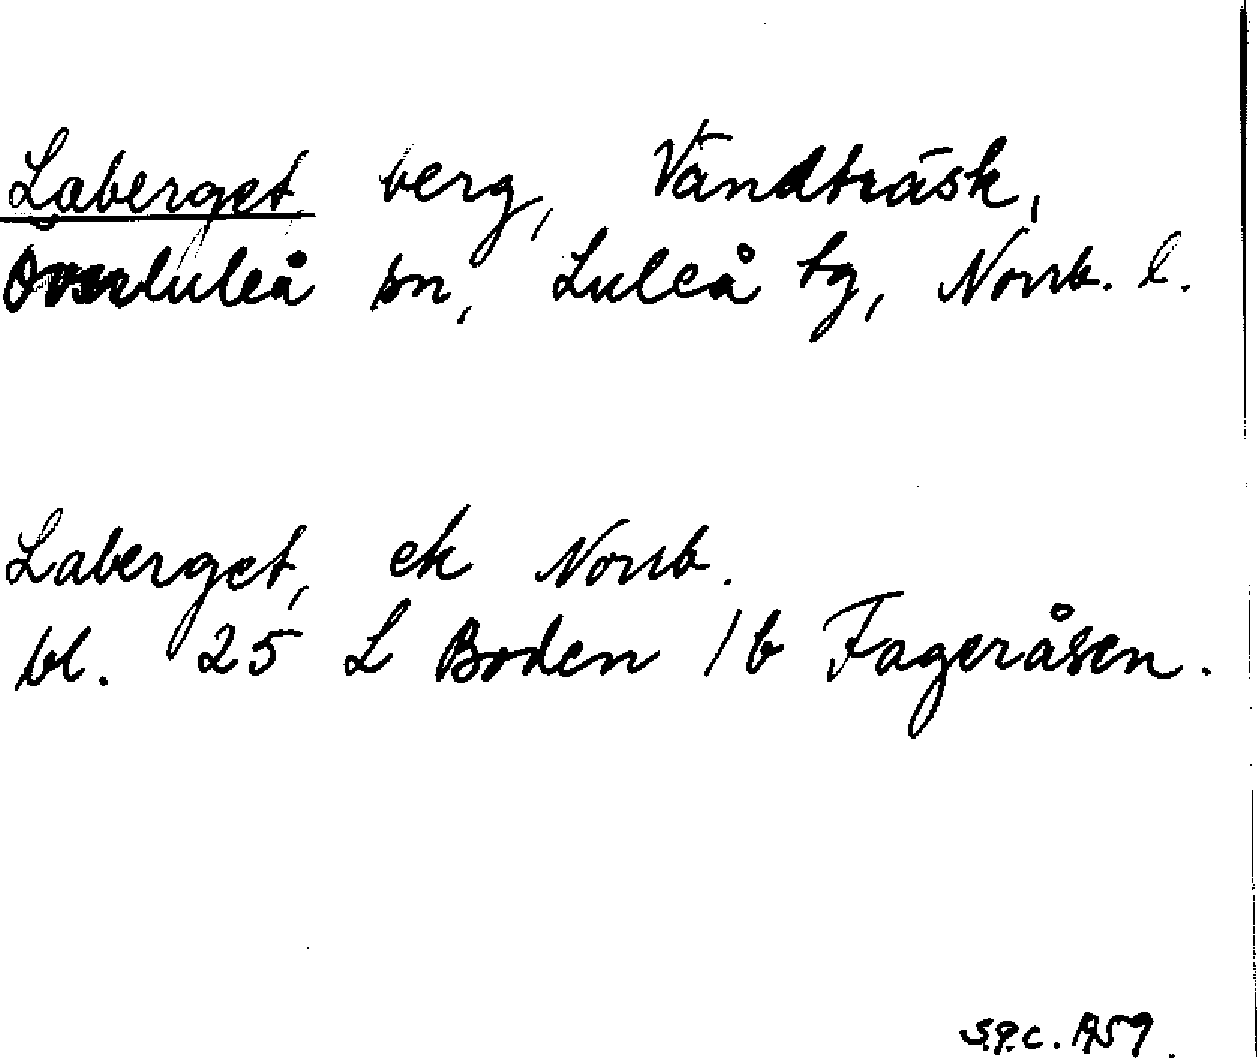 Laberget berg, Vändträsk,
Överluleå sn, Luleå tg, Norrb. l.
Laberget, ek Norrb.
bl. 25 L Boden 1b Fageråsen.